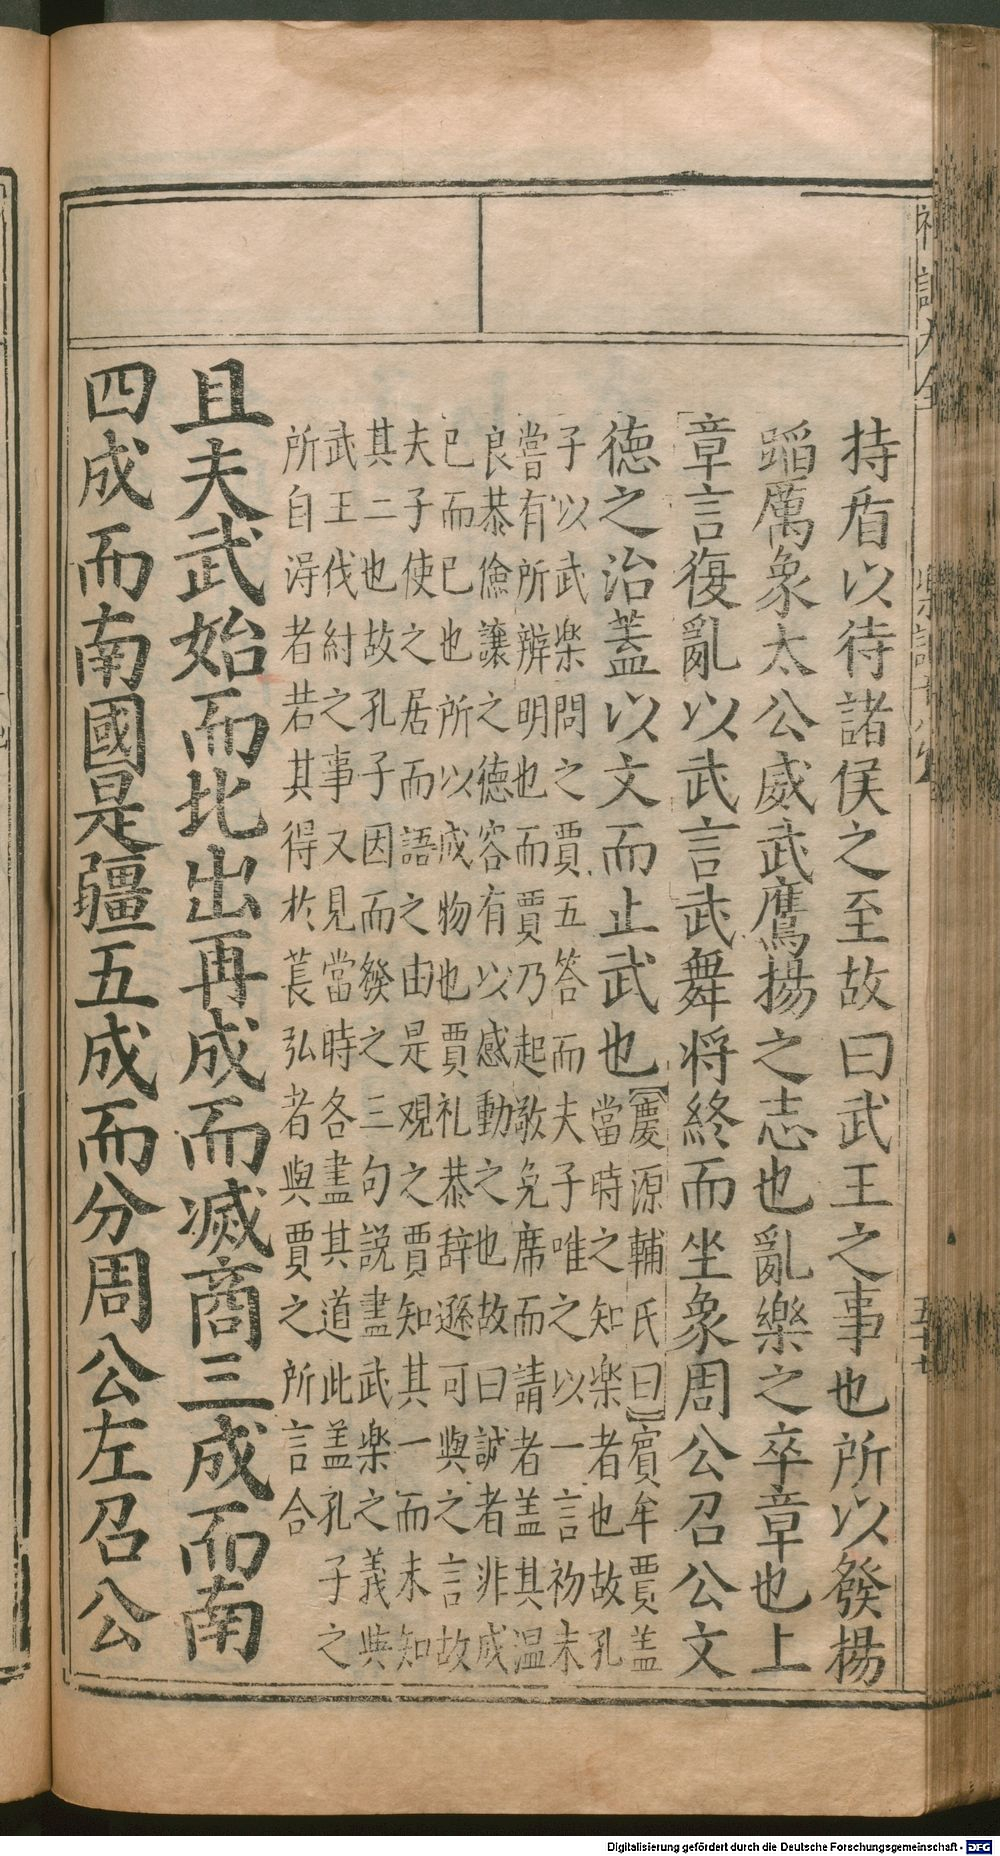 持盾以待諸侯之至故曰武王之事也所以發揚
蹈厲象太公威武鷹揚之志也亂樂之卒章也上
章言復亂以武言武舞将終而坐象周公召公文
德之治蓋以文而止武也【慶源輔氏曰】賓牟賈盖
當時之知楽者也故孔
子以武楽問之賈五答而夫子唯之以一言初未
嘗有所辨明也而賈乃起敬免席而請者盖其温
良恭儉讓之德容有以感動之也故曰誠者非成
已而已也所以成物也賈礼恭辞遜可與之言故
夫子使之居而語之由是观之賈知其一而未知
其二也故孔子因而發之三句説盡武楽之義與
武王伐紂之事又見當時各盡其道此盖孔子之
所自淂者若其得扵萇弘者與賈之所言合
且夫武始而北出再成而滅商三成而南
四成而南國是疆五成而分周公左召公
Digitalisierung gefördert durch die Deutsche Forschungsgemeinschaft - DFG